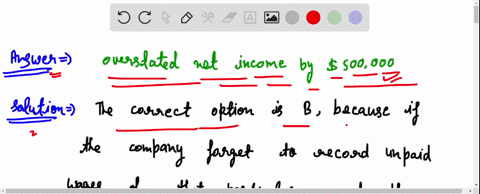 Answer=) overstated net income by $ 500,000
Solution=) The correct option is B, because if
the company forget to record unpaid